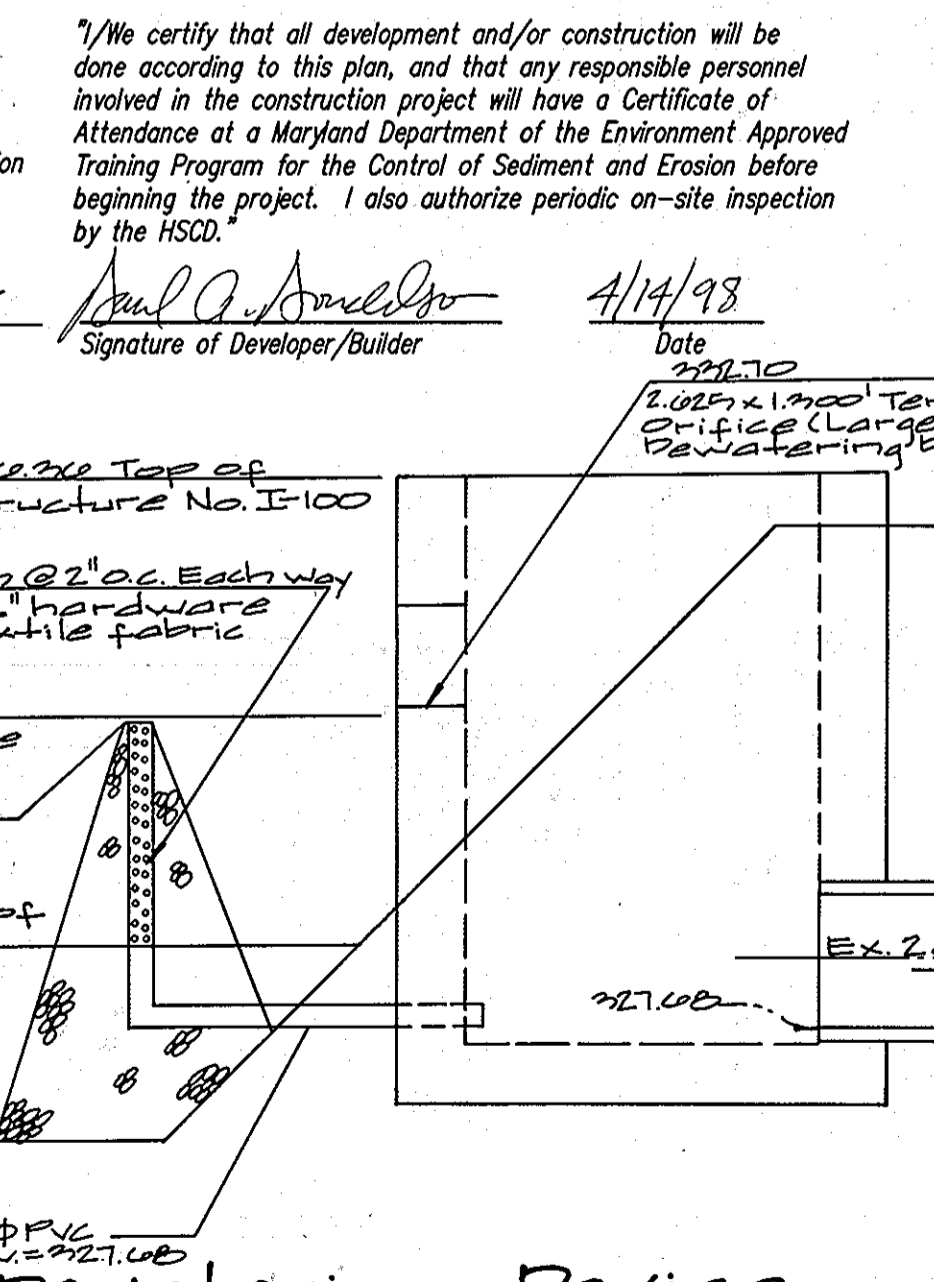 "I/We certify that all development and/or construction will be
done according to this plan, and that any responsible personnel
involved in the construction project will have a Certificate of
Attendance at a Maryland Department of the Environment Approved
Training Program for the Control of Sediment and Erosion before
beginning the project. I also authorize periodic on-site inspection
by the HSCD."
4/14/98
Signature of Developer/Builder
Date
332.70
2.625 x 1.300'
Orifice (Large
Dewatering
6.36 Top of
ructure No. I-100
@ 2" O.C. Each way
" hardware
fabric
of
Ex. 2.
327.68
φ PVC
= 327.68
Device